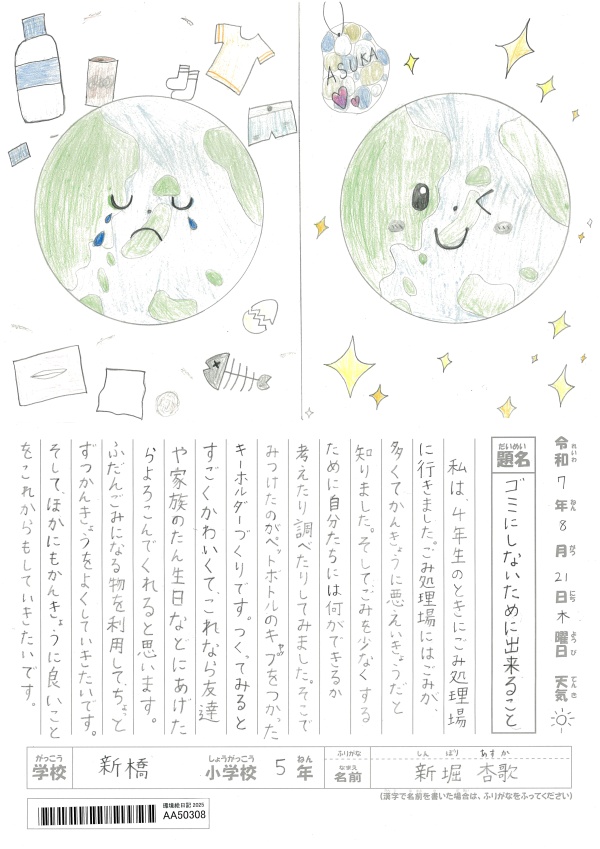 ASUKA
令和7年8月21日木曜日 天気
れいわ ねん がつ にち ようび てんき
だいめい
題名 ゴミにしないために出来ること
私は、4年生のときにごみ処理場
に行きました。ごみ処理場にはごみが、
多くてかんきょうに悪えいきょうだと
知りました。そして、ごみを少なくする
ために自分たちには何ができるか
考えたり調べたりしてみました。そこで
みつけたのがペットボトルのキャップをつかった
キーホルダーづくりです。つくってみると
すごくかわいくて、これなら友達
や家族のたん生日などにあげた
らよろこんでくれると思います。
ふだんごみになる物を利用して、ちょっと
ずつかんきょうをよくしていきたいです。
そして、ほかにもかんきょうに良いこと
をこれからもしていきたいです。
がっこう しょうがっこう ねん ふりがな しんぼり あすか
学校 新橋 小学校 5年 なまえ 名前 新堀 杏歌
(漢字で名前を書いた場合は、ふりがなをふってください)
環境絵日記 2025
AA50308